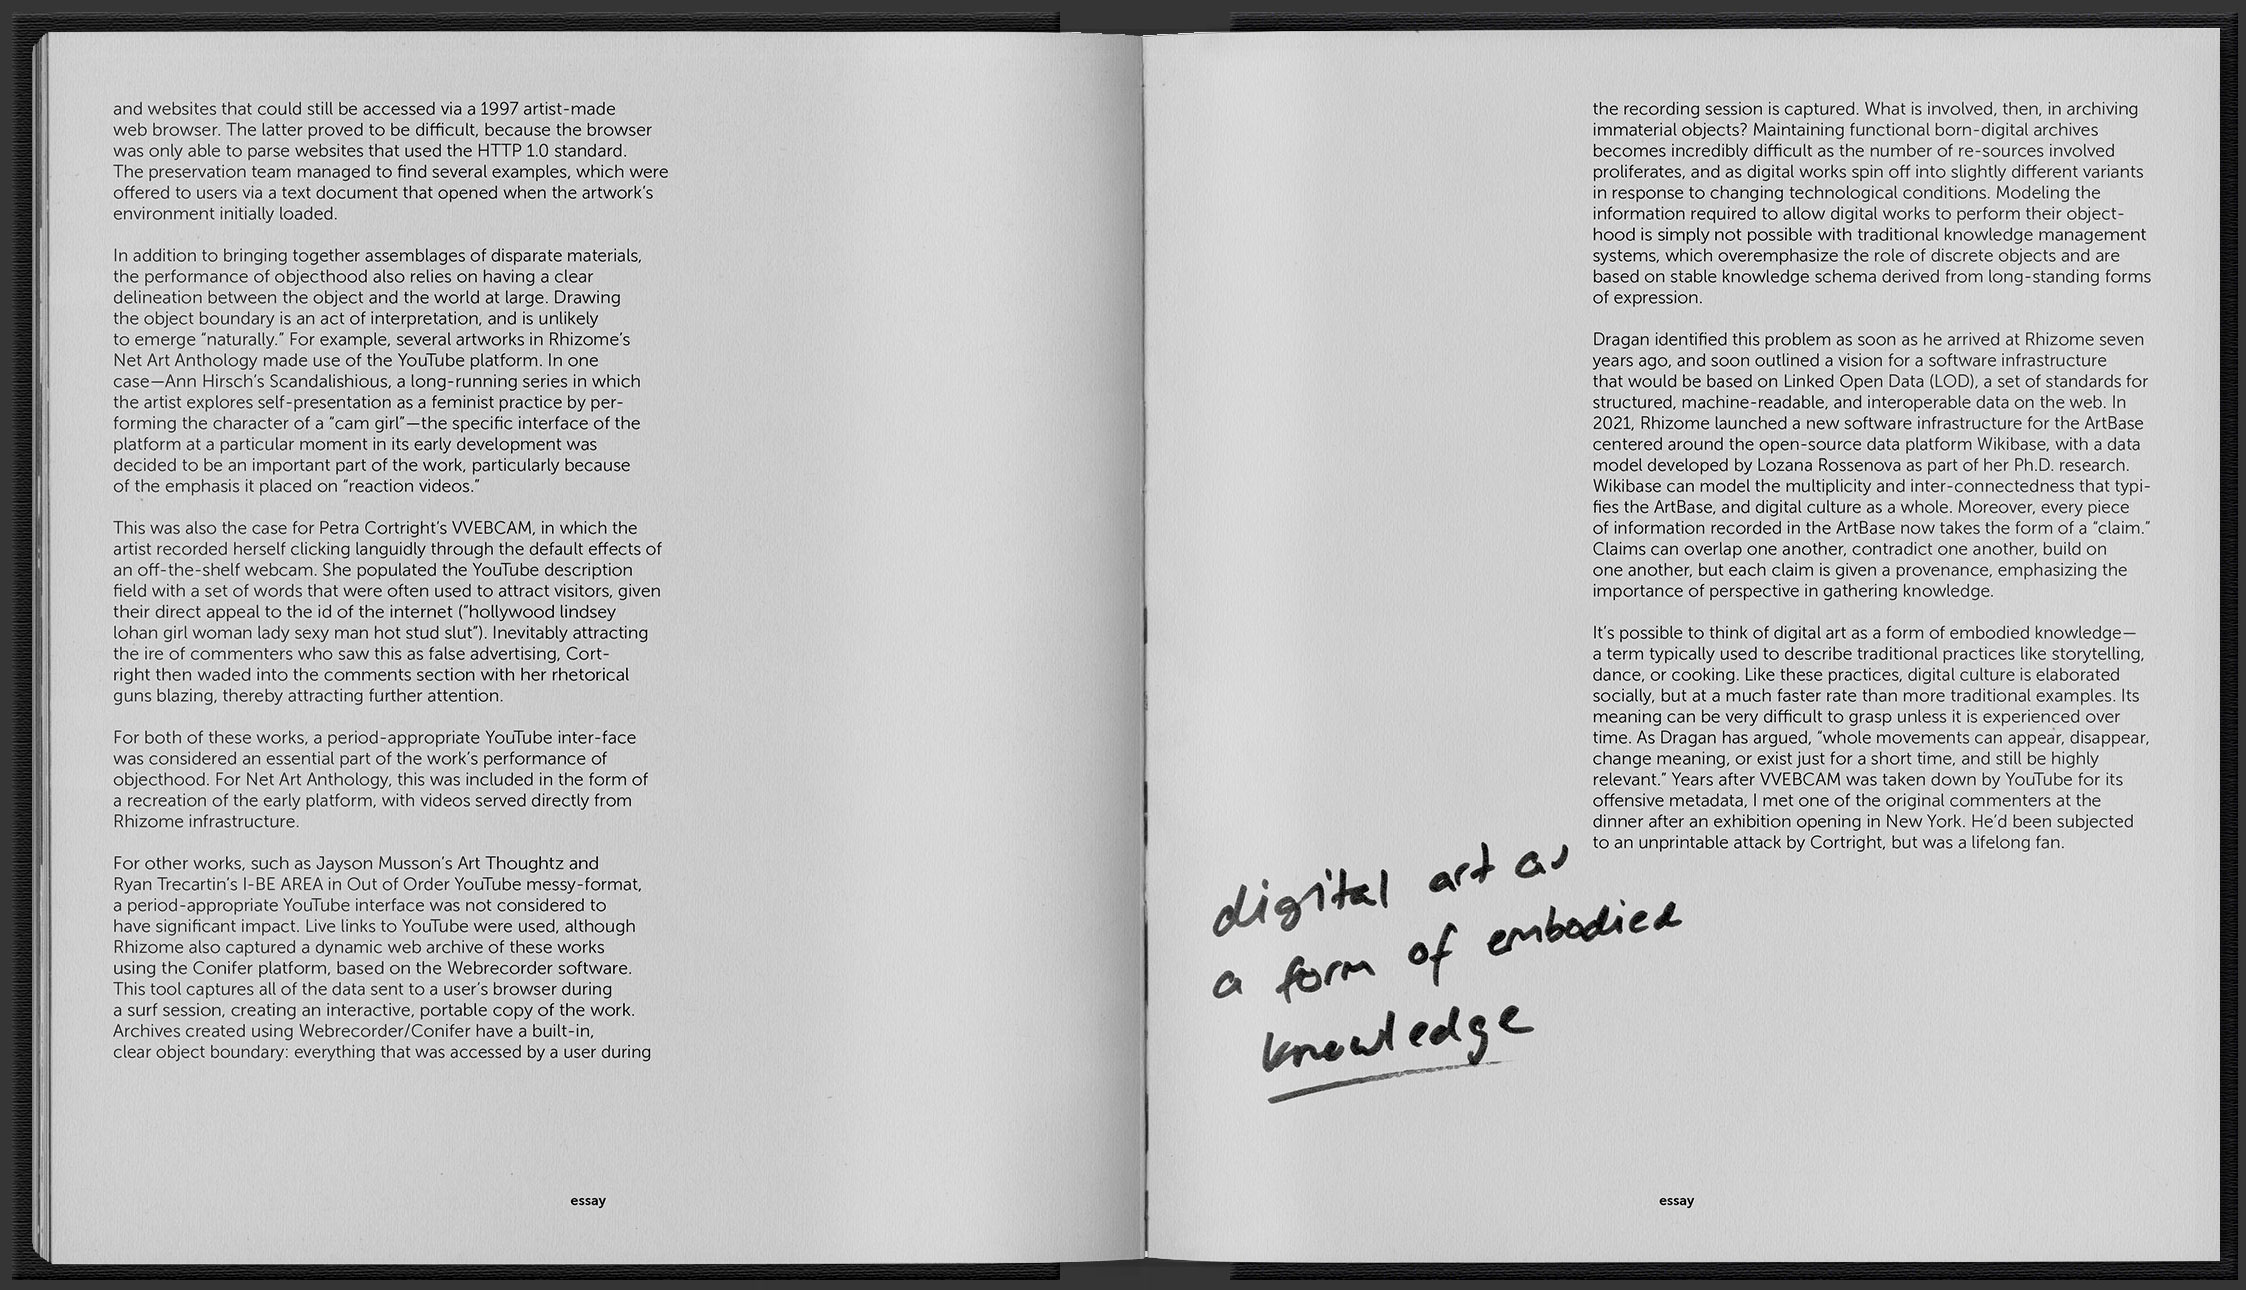 and websites that could still be accessed via a 1997 artist-made
web browser. The latter proved to be difficult, because the browser
was only able to parse websites that used the HTTP 1.0 standard.
The preservation team managed to find several examples, which were
offered to users via a text document that opened when the artwork's
environment initially loaded.
In addition to bringing together assemblages of disparate materials,
the performance of objecthood also relies on having a clear
delineation between the object and the world at large. Drawing
the object boundary is an act of interpretation, and is unlikely
to emerge “naturally.” For example, several artworks in Rhizome's
Net Art Anthology made use of the YouTube platform. In one
case—Ann Hirsch's Scandalishious, a long-running series in which
the artist explores self-presentation as a feminist practice by per-
forming the character of a “cam girl”—the specific interface of the
platform at a particular moment in its early development was
decided to be an important part of the work, particularly because
of the emphasis it placed on “reaction videos.”
This was also the case for Petra Cortright's VVEBCAM, in which the
artist recorded herself clicking languidly through the default effects of
an off-the-shelf webcam. She populated the YouTube description
field with a set of words that were often used to attract visitors, given
their direct appeal to the id of the internet (“hollywood lindsey
lohan girl woman lady sexy man hot stud slut”). Inevitably attracting
the ire of commenters who saw this as false advertising, Cort-
right then waded into the comments section with her rhetorical
guns blazing, thereby attracting further attention.
For both of these works, a period-appropriate YouTube inter-face
was considered an essential part of the work's performance of
objecthood. For Net Art Anthology, this was included in the form of
a recreation of the early platform, with videos served directly from
Rhizome infrastructure.
For other works, such as Jayson Musson's Art Thoughtz and
Ryan Trecartin's I-BE AREA in Out of Order YouTube messy-format,
a period-appropriate YouTube interface was not considered to
have significant impact. Live links to YouTube were used, although
Rhizome also captured a dynamic web archive of these works
using the Conifer platform, based on the Webrecorder software.
This tool captures all of the data sent to a user's browser during
a surf session, creating an interactive, portable copy of the work.
Archives created using Webrecorder/Conifer have a built-in,
clear object boundary: everything that was accessed by a user during
essay
the recording session is captured. What is involved, then, in archiving
immaterial objects? Maintaining functional born-digital archives
becomes incredibly difficult as the number of re-sources involved
proliferates, and as digital works spin off into slightly different variants
in response to changing technological conditions. Modeling the
information required to allow digital works to perform their object-
hood is simply not possible with traditional knowledge management
systems, which overemphasize the role of discrete objects and are
based on stable knowledge schema derived from long-standing forms
of expression.
Dragan identified this problem as soon as he arrived at Rhizome seven
years ago, and soon outlined a vision for a software infrastructure
that would be based on Linked Open Data (LOD), a set of standards for
structured, machine-readable, and interoperable data on the web. In
2021, Rhizome launched a new software infrastructure for the ArtBase
centered around the open-source data platform Wikibase, with a data
model developed by Lozana Rossenova as part of her Ph.D. research.
Wikibase can model the multiplicity and inter-connectedness that typi-
fies the ArtBase, and digital culture as a whole. Moreover, every piece
of information recorded in the ArtBase now takes the form of a “claim.”
Claims can overlap one another, contradict one another, build on
one another, but each claim is given a provenance, emphasizing the
importance of perspective in gathering knowledge.
It's possible to think of digital art as a form of embodied knowledge—
a term typically used to describe traditional practices like storytelling,
dance, or cooking. Like these practices, digital culture is elaborated
socially, but at a much faster rate than more traditional examples. Its
meaning can be very difficult to grasp unless it is experienced over
time. As Dragan has argued, “whole movements can appear, disappear,
change meaning, or exist just for a short time, and still be highly
relevant.” Years after VVEBCAM was taken down by YouTube for its
offensive metadata, I met one of the original commenters at the
dinner after an exhibition opening in New York. He'd been subjected
to an unprintable attack by Cortright, but was a lifelong fan.
digital art as
a form of embodied
knowledge
essay